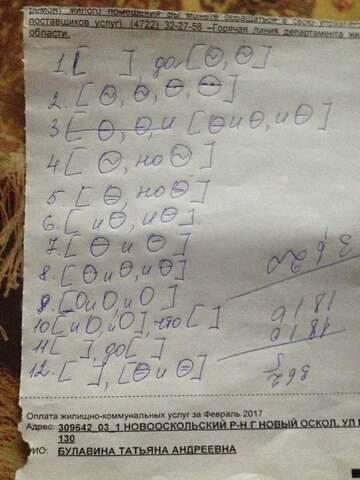 ремонт жилого помещения Вы можете обращаться в свою управля
поставщиков услуг). (4722) 32-27-58 –Горячая линия департамента жи
области.
1. [ ], до[⊖, ⊖]
2. [⊖, ⊖, ⊖, ⊖]
3. [⊖, ⊖, и [⊖и⊖, и⊖]
4. [⊖, но⊖]
5. [⊖, но⊖]
6. [ и⊖, и⊖]
7. [⊖ и ⊖]
8. [⊖и⊖, и⊖]
9. [OиO, иO]
10[иO, иO], что[ ]
11[ ], до[ ]
12. [ ], [⊖и⊖]
1816
1810
362
Оплата жилищно-коммунальных услуг за Февраль 2017
Адрес: 309642_03_1 НОВООСКОЛЬСКИЙ Р-Н Г НОВЫЙ ОСКОЛ, УЛ
130
ИО: БУЛАВИНА ТАТЬЯНА АНДРЕЕВНА